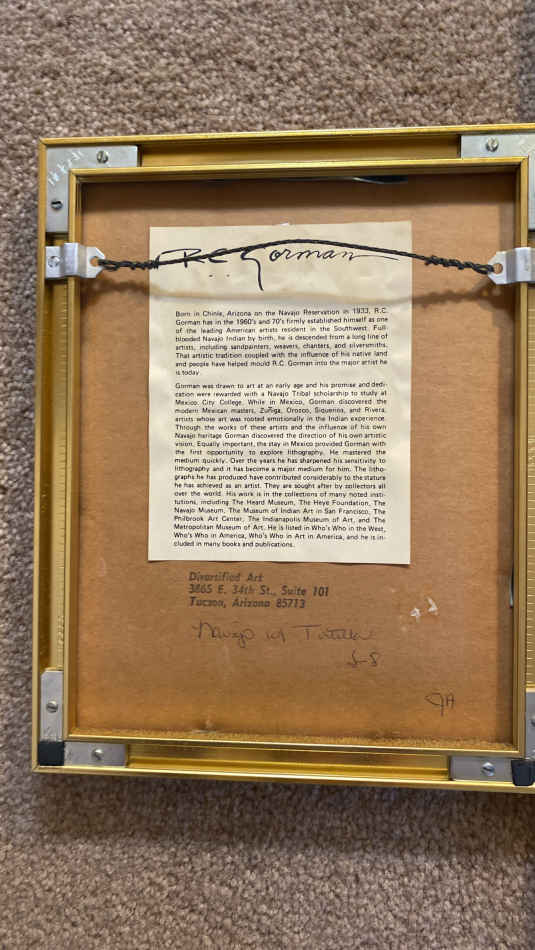 R.C. Gorman
Born in Chinle, Arizona on the Navajo Reservation in 1933, R.C.
Gorman has in the 1960's and 70's firmly established himself as one
of the leading American artists resident in the Southwest. Full-
blooded Navajo Indian by birth, he is descended from a long line of
artists, including sandpainters, weavers, chanters, and silversmiths.
That artistic tradition coupled with the influence of his native land
and people have helped mould R.C. Gorman into the major artist he
is today.
Gorman was drawn to art at an early age and his promise and dedi-
cation were rewarded with a Navajo Tribal scholarship to study at
Mexico City College. While in Mexico, Gorman discovered the
modern Mexican masters, Zuñiga, Orozco, Siquerios, and Rivera,
artists whose art was rooted emotionally in the Indian experience.
Through the works of these artists and the influence of his own
Navajo heritage Gorman discovered the direction of his own artistic
vision. Equally important, the stay in Mexico provided Gorman with
the first opportunity to explore lithography. He mastered the
medium quickly. Over the years he has sharpened his sensitivity to
lithography and it has become a major medium for him. The litho-
graphs he has produced have contributed considerably to the stature
he has achieved as an artist. They are sought after by collectors all
over the world. His work is in the collections of many noted insti-
tutions, including The Heard Museum, The Heye Foundation, The
Navajo Museum, The Museum of Indian Art in San Francisco, The
Philbrook Art Center, The Indianapolis Museum of Art, and The
Metropolitan Museum of Art. He is listed in Who's Who in the West,
Who's Who in America, Who's Who in Art in America, and he is in-
cluded in many books and publications.
Diversified Art
3865 E. 34th St., Suite 101
Tucson, Arizona 85713
Navajo